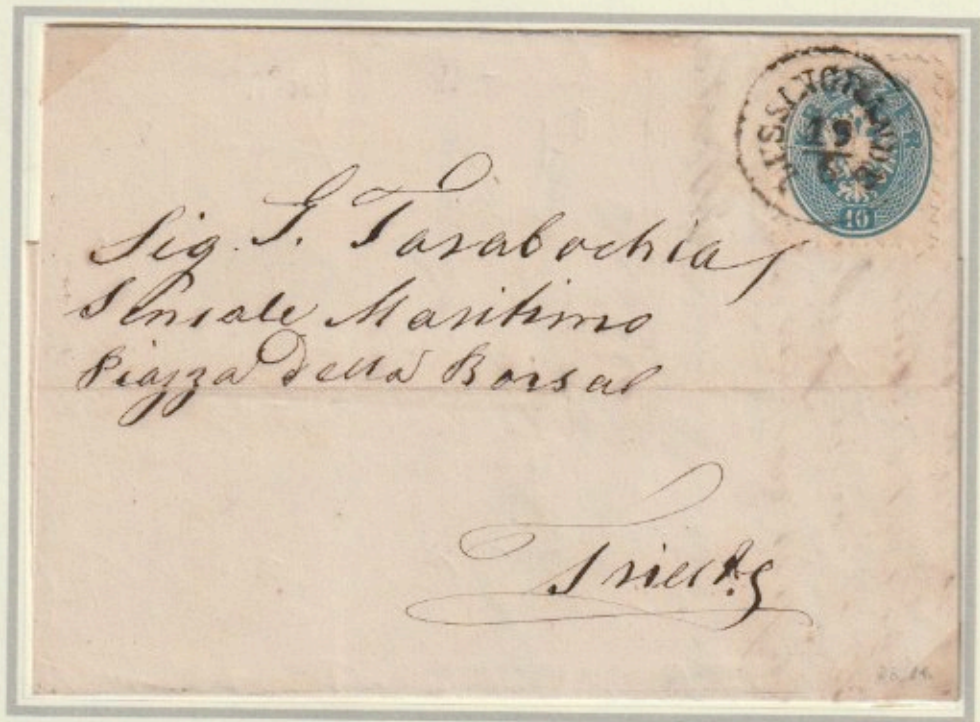 LUSSINGRANDE
19
10
Sig. G. Tarabochia
Sensale Maritimo
Piazza Della Borsa
Trieste